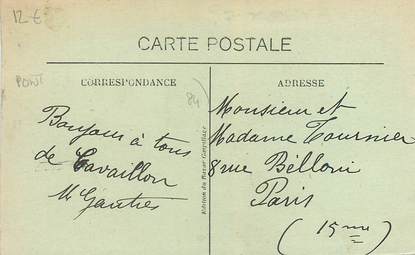 12 €
CARTE POSTALE
PONT
CORRESPONDANCE
84
ADRESSE
Bonjour à tous
de Cavaillon
M Gautier
Monsieur et
Madame Tournier
8 rue Bélloni
Paris
(15me)